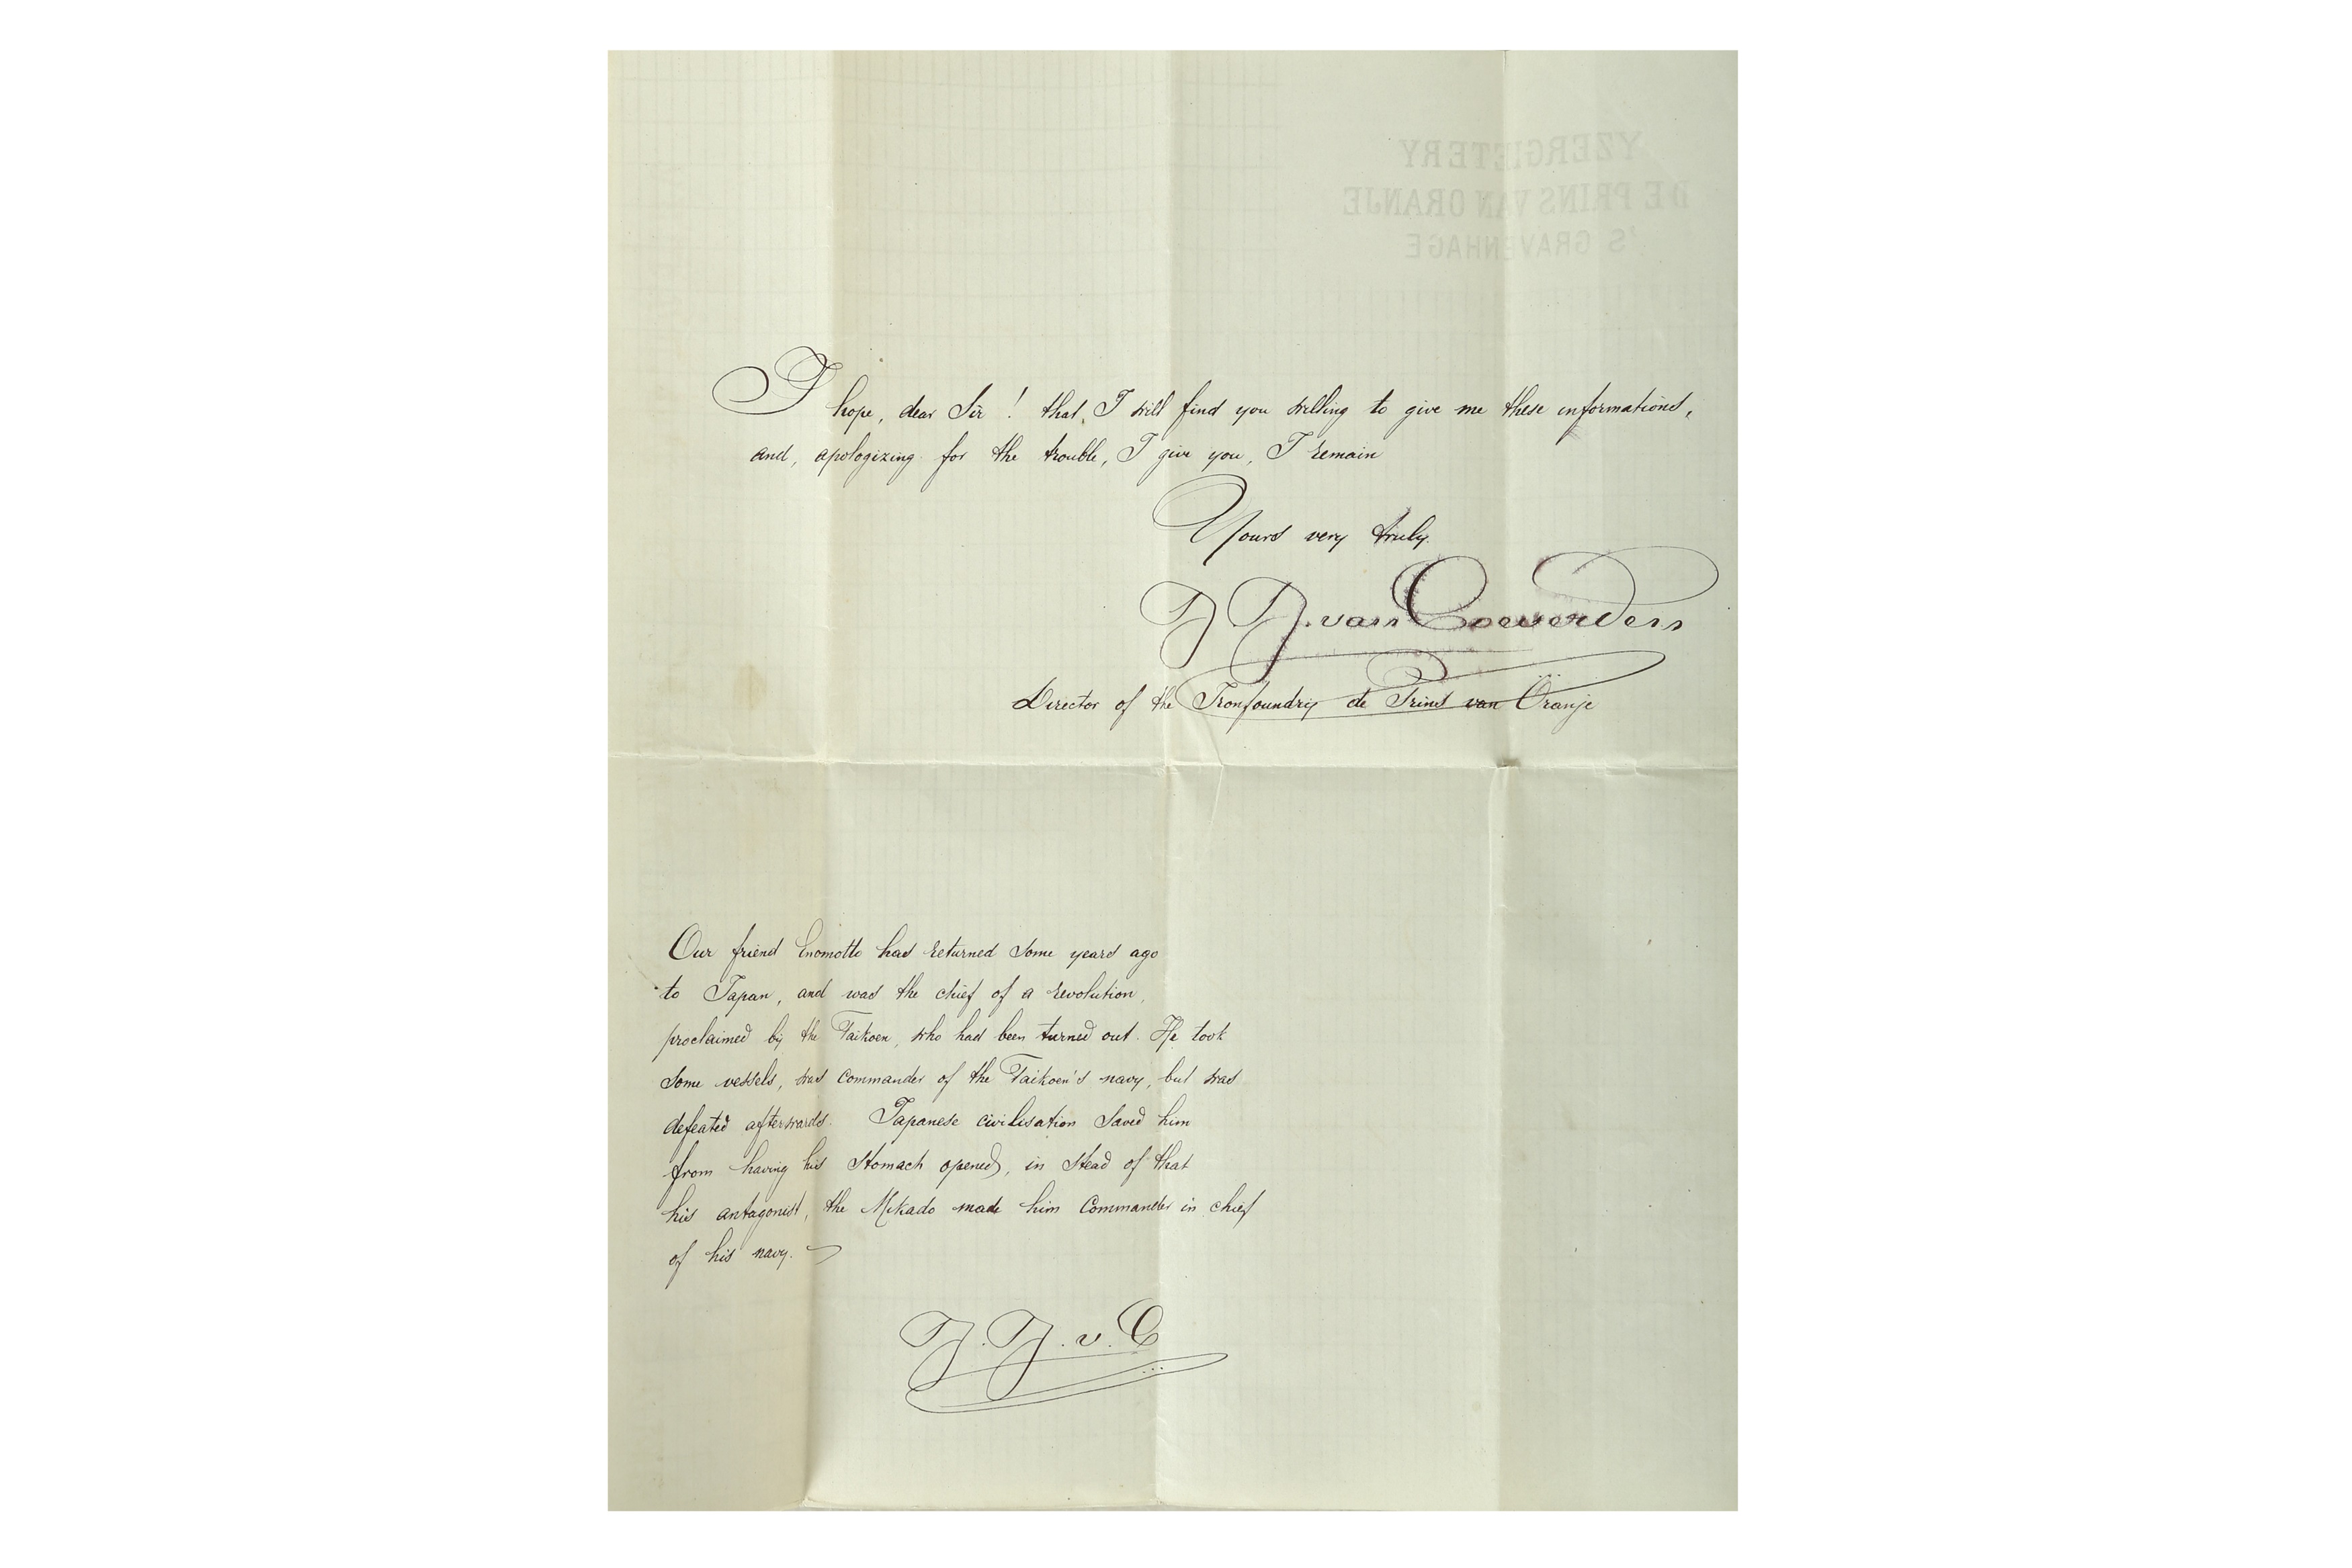 YZERGIETERY
DE PRINS VAN ORANJE
'S GRAVENHAGE
I hope, dear Sir! that, I will find you willing to give me these informations,
and, apologizing for the trouble, I give you, I remain
Yours very truly.
J J. van Coeverden
Director of the Ironfoundry de Prins van Oranje
Our friend Enomotto had returned some years ago
to Japan, and was the chief of a revolution,
proclaimed by the Taikoen, who had been turned out. He took
some vessels, was commander of the Taikoen's navy, but was
defeated afterwards. Japanese civilisation saved him
from having his stomach opened, in stead of that
his antagonist, the Mikado made him Commander in chief
of his navy.
J. J. v. C